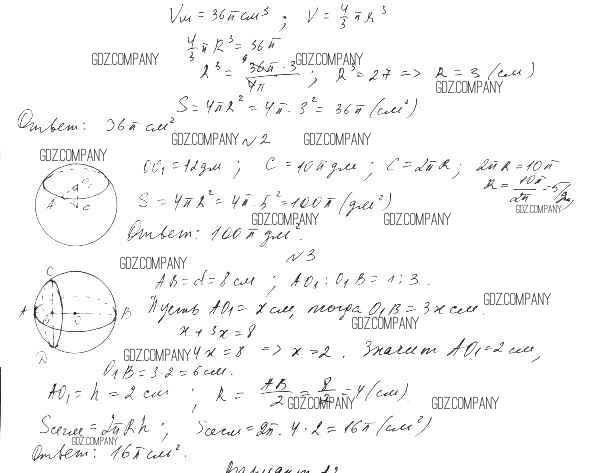 Vш = 36π см³ ; V = 4/3 π R³
4/3 π R³ = 36π
GDZ.COMPANY GDZ.COMPANY
R³ = 36π · 3 / 4π ; R³ = 27 => R = 3 (см)
GDZ.COMPANY
S = 4πR² = 4π · 3² = 36π (см²)
Ответ: 36π см²
GDZ.COMPANY №2 GDZ.COMPANY
GDZ.COMPANY
OO₁ = 12дм ; C = 10π дм ; C = 2πR ; 2πR = 10π
R = 10π / 2π = 5
S = 4πR² = 4π · 5² = 100π (дм²)
GDZ.COMPANY
GDZ.COMPANY GDZ.COMPANY
Ответ: 100π дм².
№3
GDZ.COMPANY
AB = d = 8 см ; AO₁ : O₁B = 1 : 3.
Пусть AO₁ = x см, тогда O₁B = 3x см.
GDZ.COMPANY
GDZ.COMPANY
x + 3x = 8
GDZ.COMPANY 4x = 8 => x = 2 . Значит AO₁ = 2 см,
O₁B = 3·2 = 6 см.
AO₁ = h = 2 см ; R = AB / 2 = 8 / 2 = 4 (см)
GDZ.COMPANY GDZ.COMPANY
Sсегм = 2πRh ; Sсегм = 2π · 4 · 2 = 16π (см²)
GDZ.COMPANY
Ответ: 16π см².